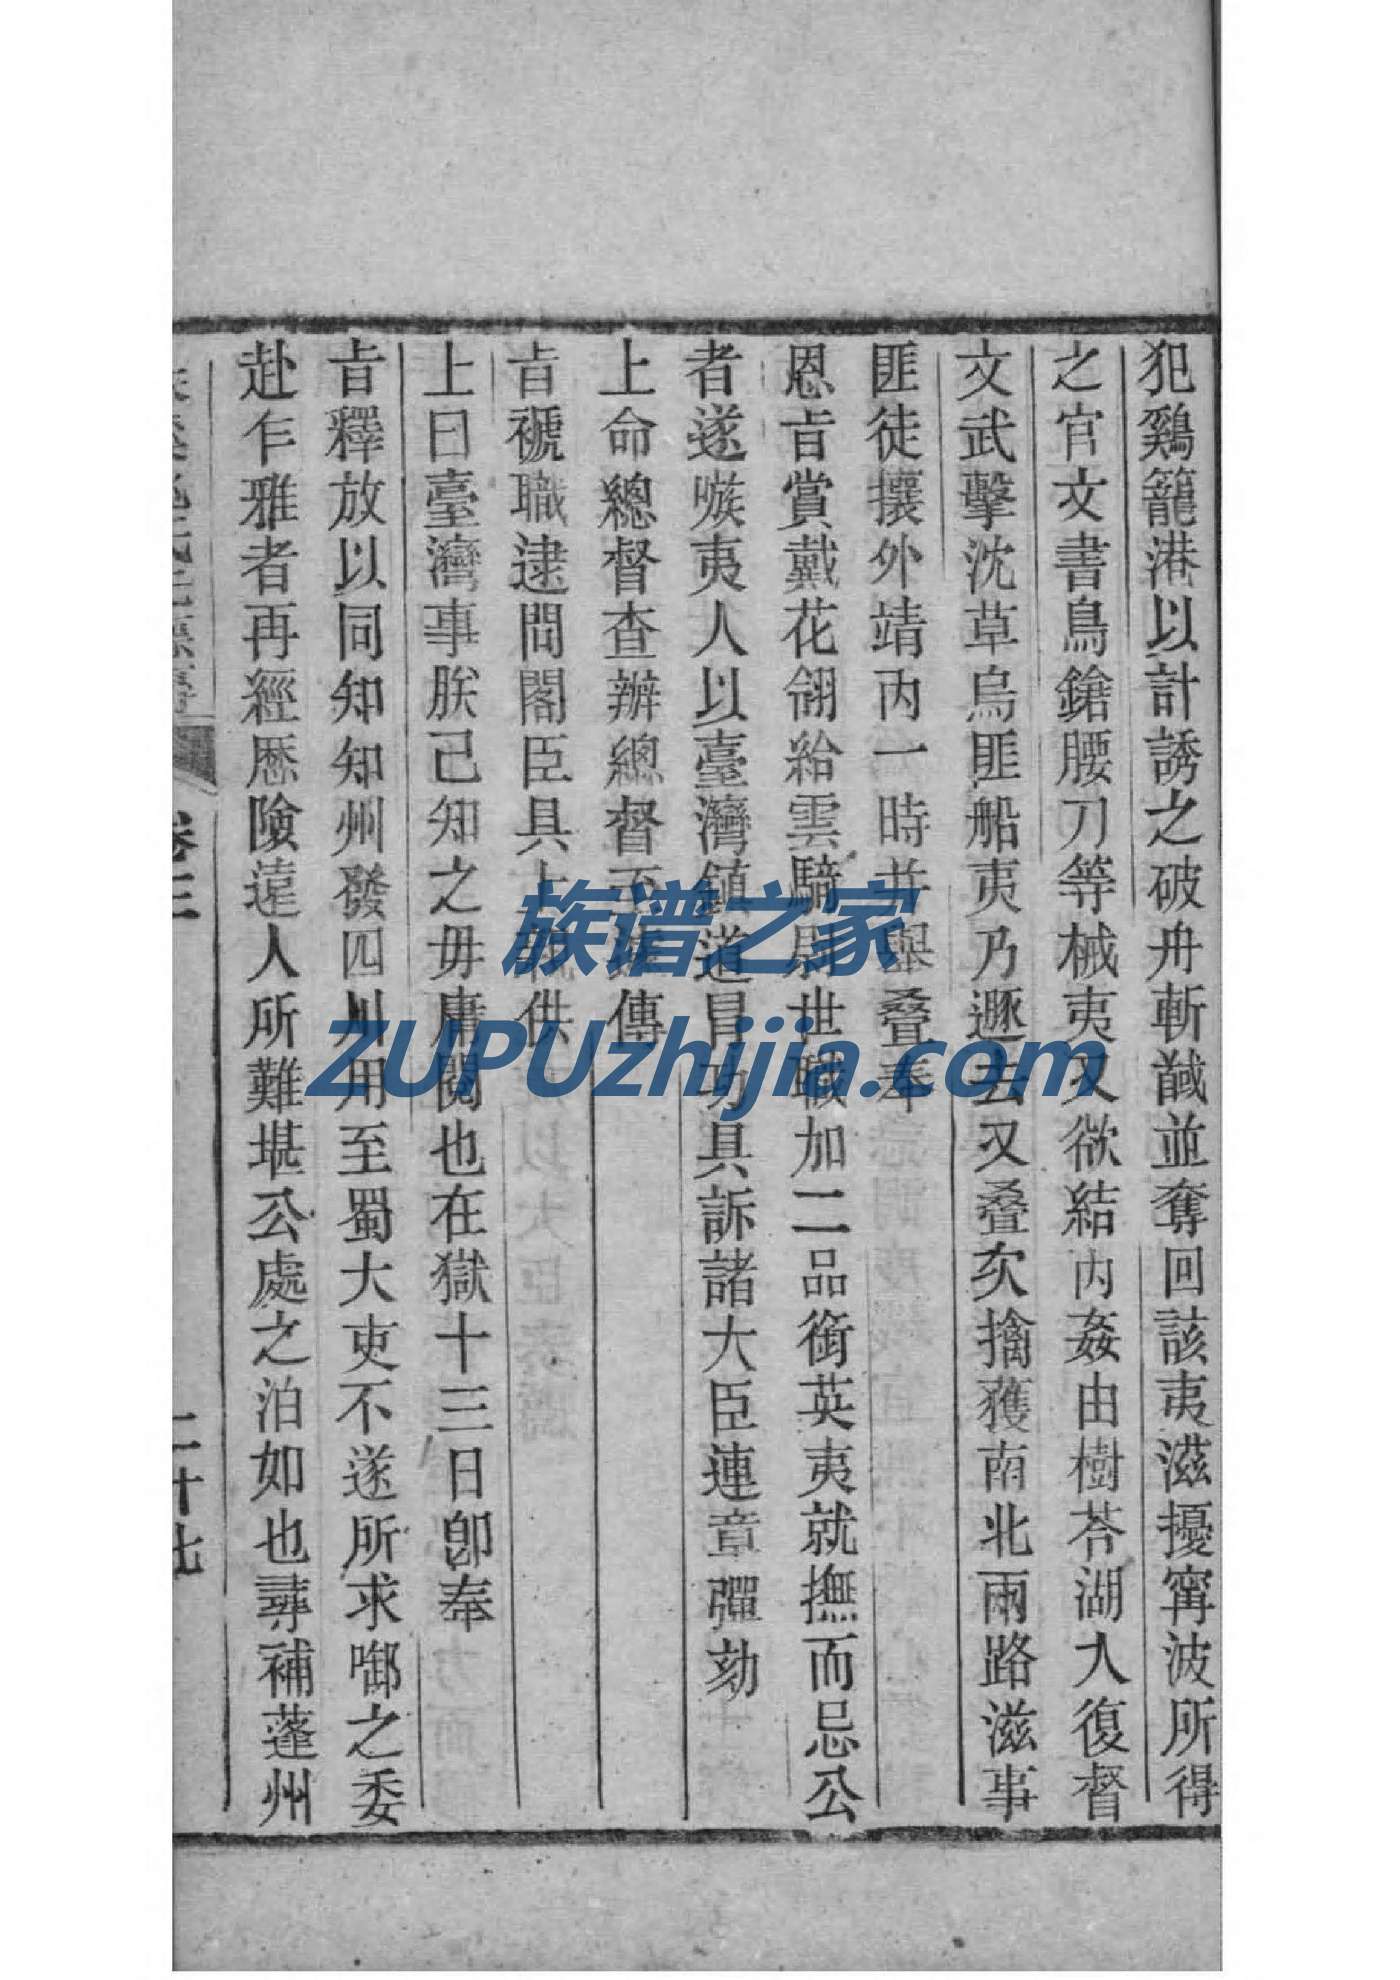 犯鷄籠港以計誘之破舟斬馘並奪回該夷滋擾寗波所得
之官文書鳥鎗腰刀等械夷又欲結内姦由樹苓湖入復督
文武擊沈草烏匪船夷乃遯去又叠次擒獲南北兩路滋事
匪徒攘外靖内一時并舉叠奉
恩旨賞戴花翎給雲騎尉世職加二品銜英夷就撫而忌公
者遂嗾夷人以臺灣鎮道冒功具訴諸大臣連章彈劾
上命總督查辦總督至遽傳
旨褫職逮問閣臣具上親供
上曰臺灣事朕已知之毋庸閱也在獄十三日卽奉
旨釋放以同知知州發四川用至蜀大吏不遂所求啣之委
赴乍雅者再經歷險遠人所難堪公處之泊如也尋補蓬州
卷三
二十七
族谱之家
ZUPUzhijia.com